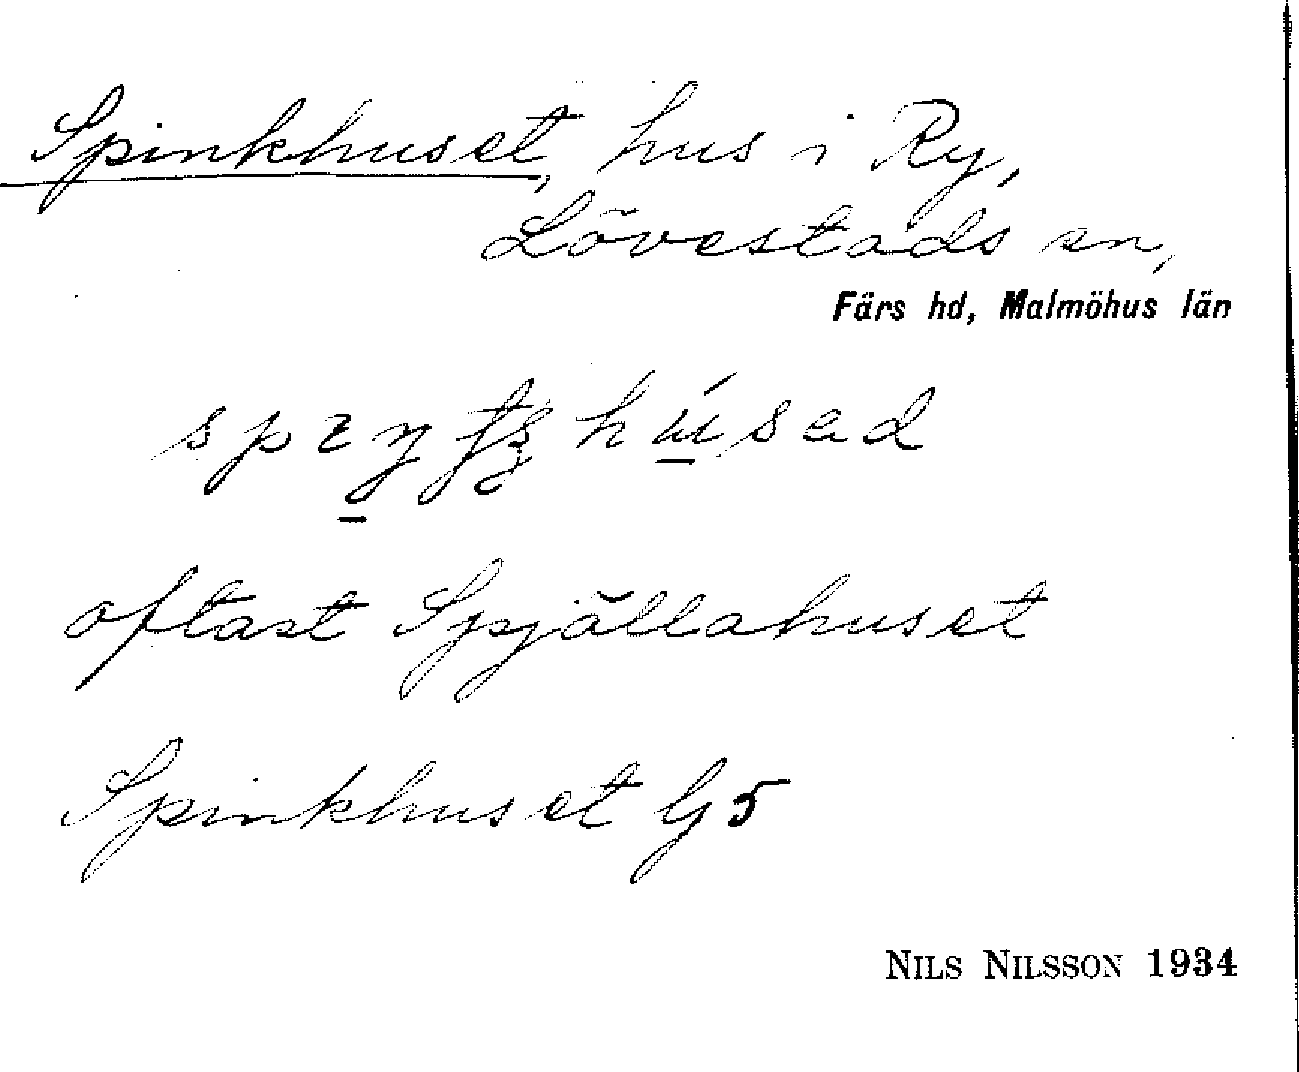 Spinkhuset, hus i Ry,
Lövestads sn,
Färs hd, Malmöhus län
oftast Spjällahuset
Spinkhuset G5
NILS NILSSON 1934